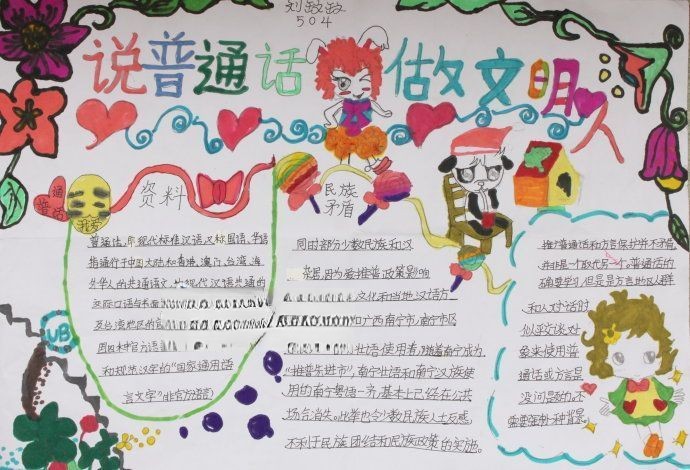 刘政政
504
说普通话 做文明人
普通话
我爱
资料
普通话,即现代标准汉语,又称国语、华语
指通行于中国大陆和香港、澳门、台湾、海
外华人的共通语文,
现代汉语共通的
及台湾地区的
和规范汉字的"国家通用语
言文字"(非官方语言)
UB
民族
矛盾
同时部分少数民族和汉
因为受推普政策影响
文化和当地汉语方
和广西南宁市,南宁市区
壮语使用者,随着南宁成为
"推普先进市",南宁壮语和南宁汉族使
用的南宁粤语一齐,基本上已经在公共
场合消失。此举也令少数民族人士反感,
不利于民族团结和民族政策的实施。
推广普通话和方言保护并不矛盾,
并非是一个取代另一个。普通话的
确要学习,但是是方言地区人群
和人对话时
似乎立
象来使用普
通话或方言是
没问题的,不
需要强制一种背景。